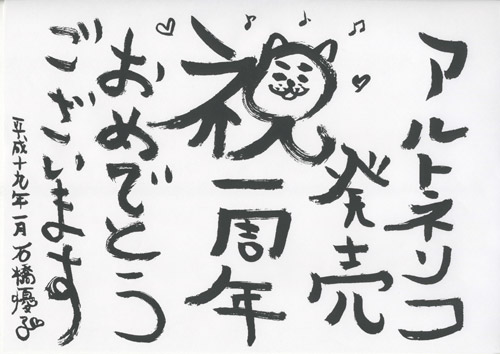 アルトネリコ
発売
祝一周年
おめでとう
ございます
平成十九年一月 石橋優子